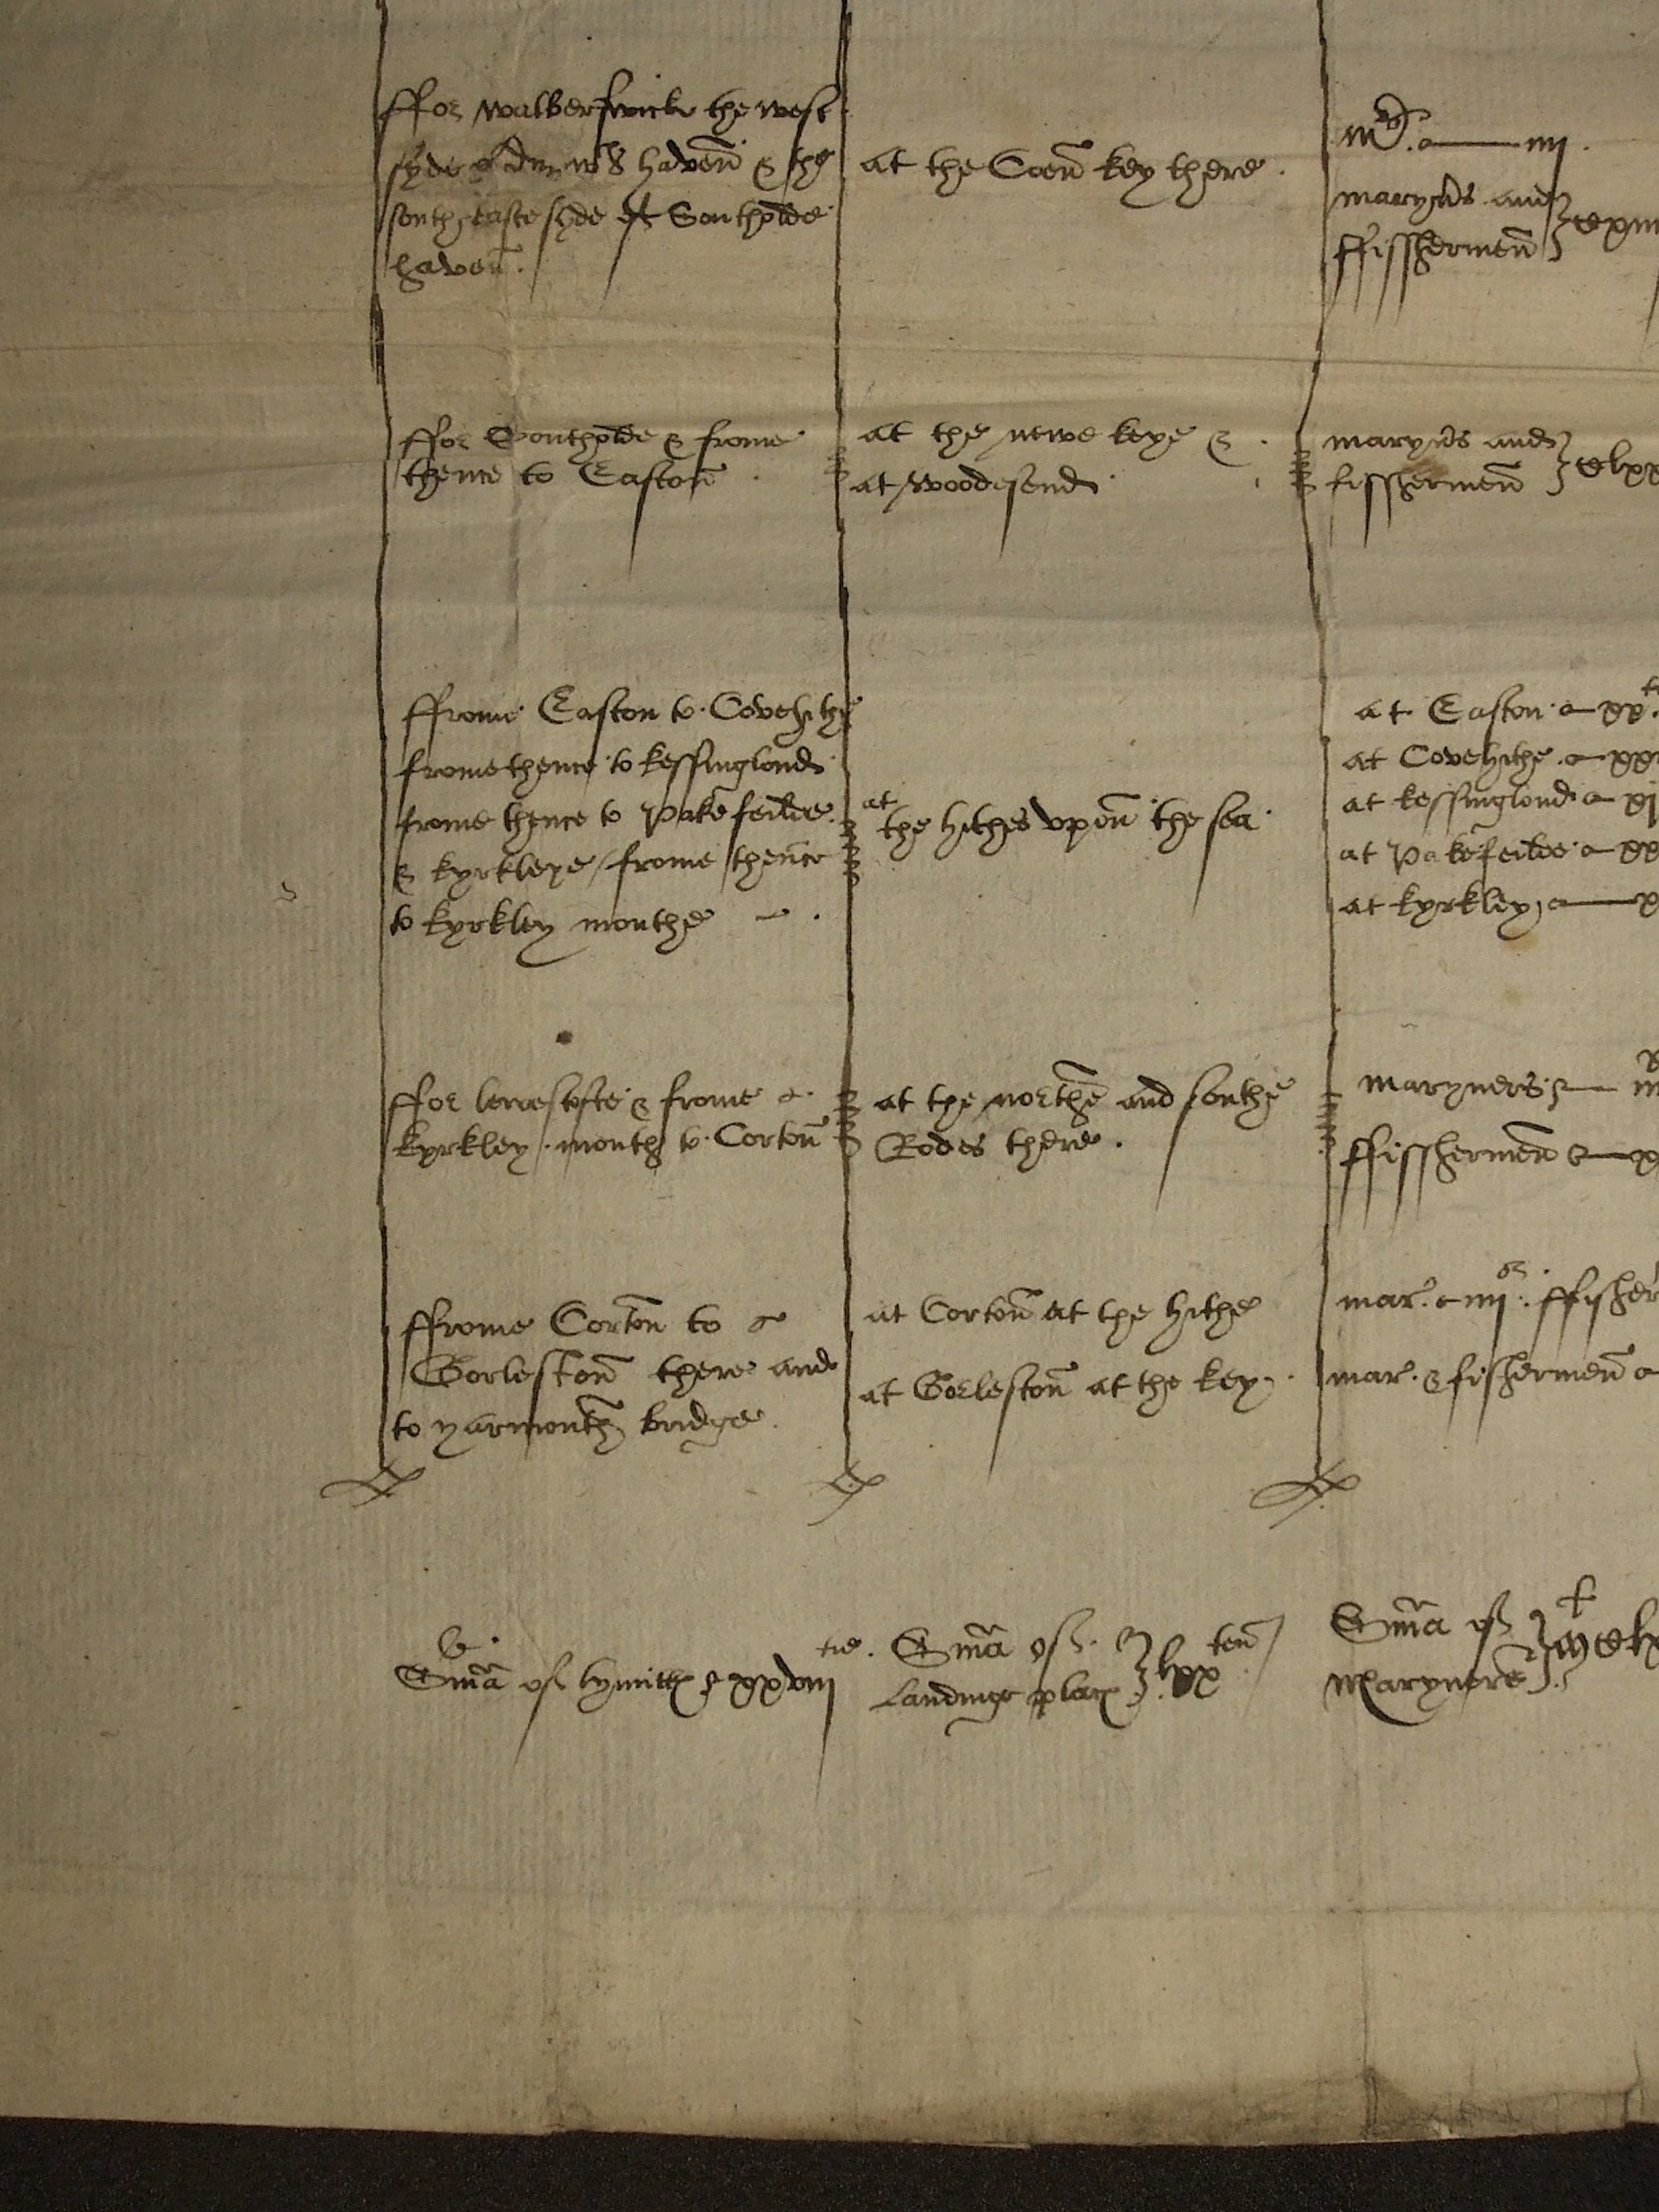 ffor walberswick the west
syde of donw͡ts haven̄ & the
south easte syde of Southolde
haven̄.
at the Comen̄ key there.
mr̄. iiij.
maryn̄s and
ffisshermen̄
ffor Southolde & frome
thence to Easton̄
at the newe keye &
at woodesend
maryn̄s and
fisshermen̄
ffrome Easton to Covehithe
frome thence to kessinglond
frome thence to Pakefeilde
& kyrkleye / frome thence
to kyrkley mouthe
at
the hithes vpon̄ the sea
at Easton xx
at Covehithe xx
at kessinglond xj
at Pakefeilde xx
at kyrkley x
ffor lowestofte & frome
kyrkley mouth to Corton̄
at the northe and southe
Rodes there.
maryners
ffisshermen̄
ffrome Corton̄ to
Gorleston̄ there and
to yarmouth bridge.
at Corton̄ at the hithe
at Gorleston̄ at the key.
mar. iiij. ffisher
mar. & fishermen̄
Sm̄a of lymittes xxviij
Sm̄a of
Landinge places lxx
Sm̄a of
Maryners